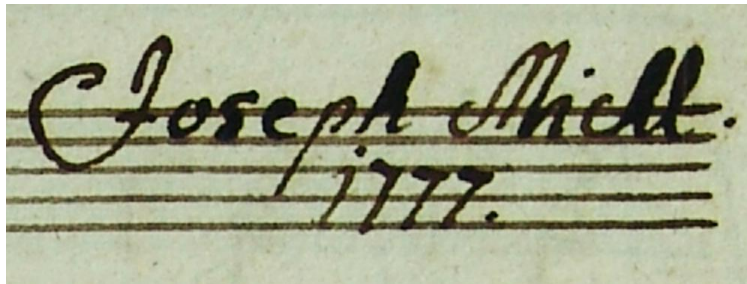 Joseph Michl.
1777.